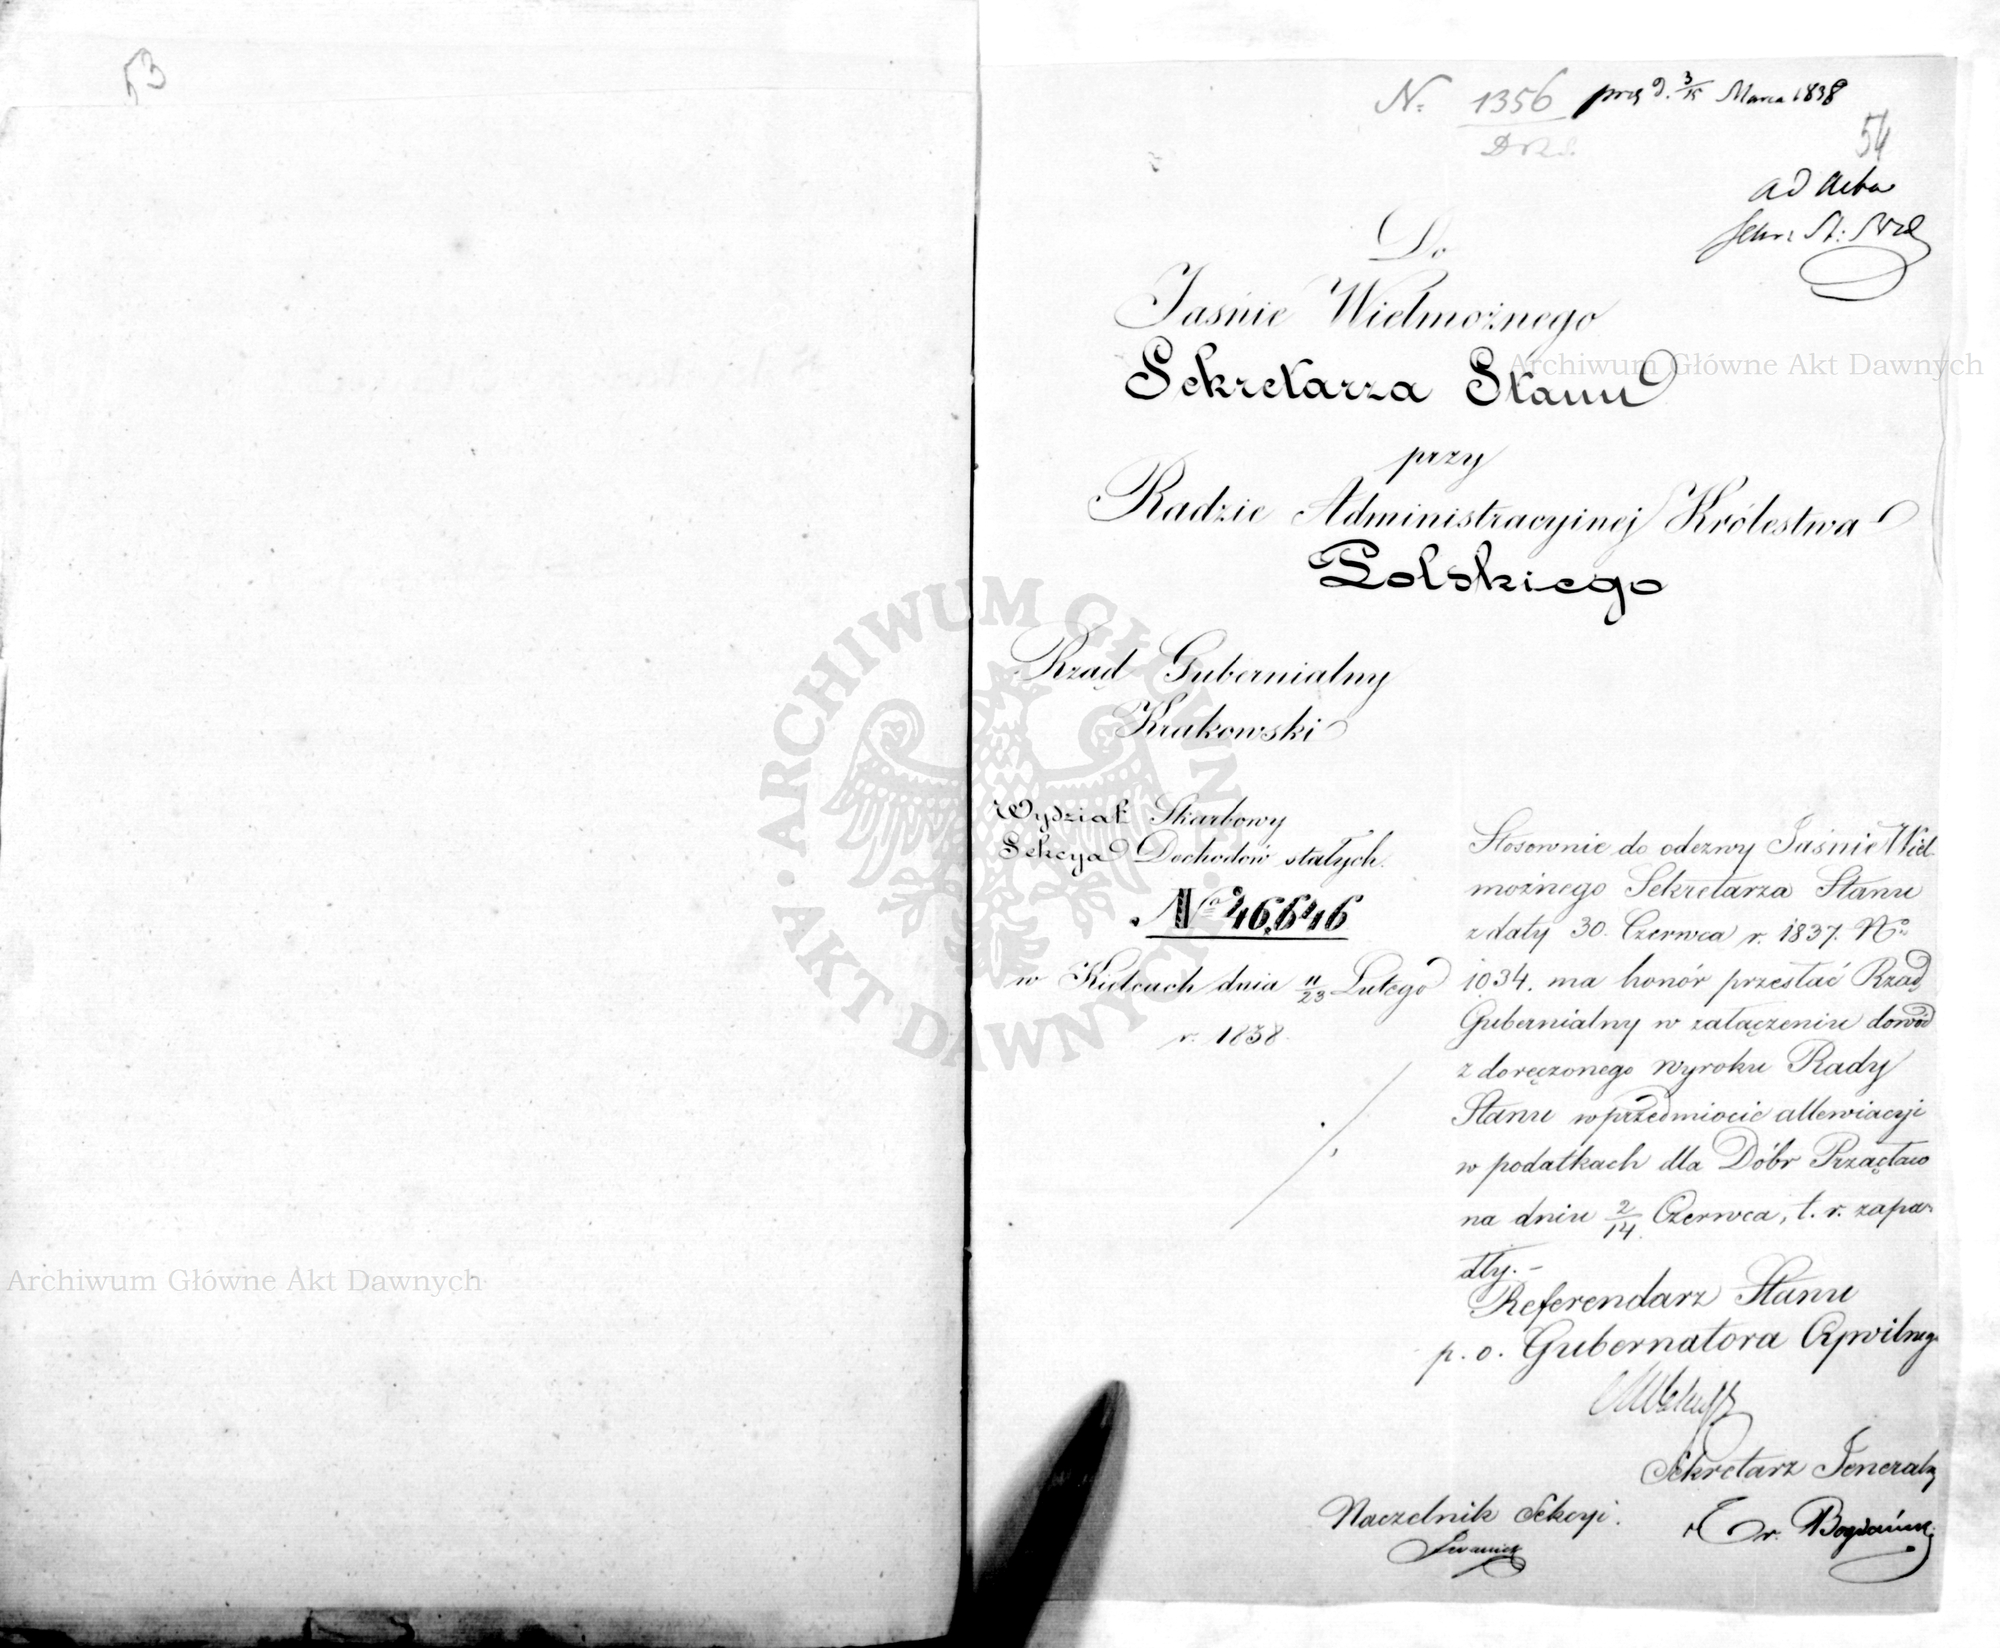 53
N: 1356 3/15 Marca 1838
54
ad acta
Do
Jaśnie Wielmożnego
Sekretarza Stanu
Archiwum Główne Akt Dawnych
przy
Radzie Administracyjnej Królestwa
Polskiego
ARCHIWUM GŁÓWNE AKT DAWNYCH
Rząd Gubernialny
Krakowski
Wydział Skarbowy
Sekcya Dochodów stałych.
No 46,646
w Kielcach dnia 11/23 Lutego
r. 1838.
Stosownie do odezwy Jaśnie Wiel-
możnego Sekretarza Stanu
z daty 30. Czerwca r. 1837. No
1034. ma honór przesłać Rząd
Gubernialny w załączeniu dowód
z doręczonego wyroku Rady
Stanu w przedmiocie allewiacyi
w podatkach dla Dóbr
na dniu 2/14 Czerwca, t. r. zapa-
dły. –
Archiwum Główne Akt Dawnych
Referendarz Stanu
p. o. Gubernatora Cywilnego
Sekretarz Jeneralny
Naczelnik Sekcyi.